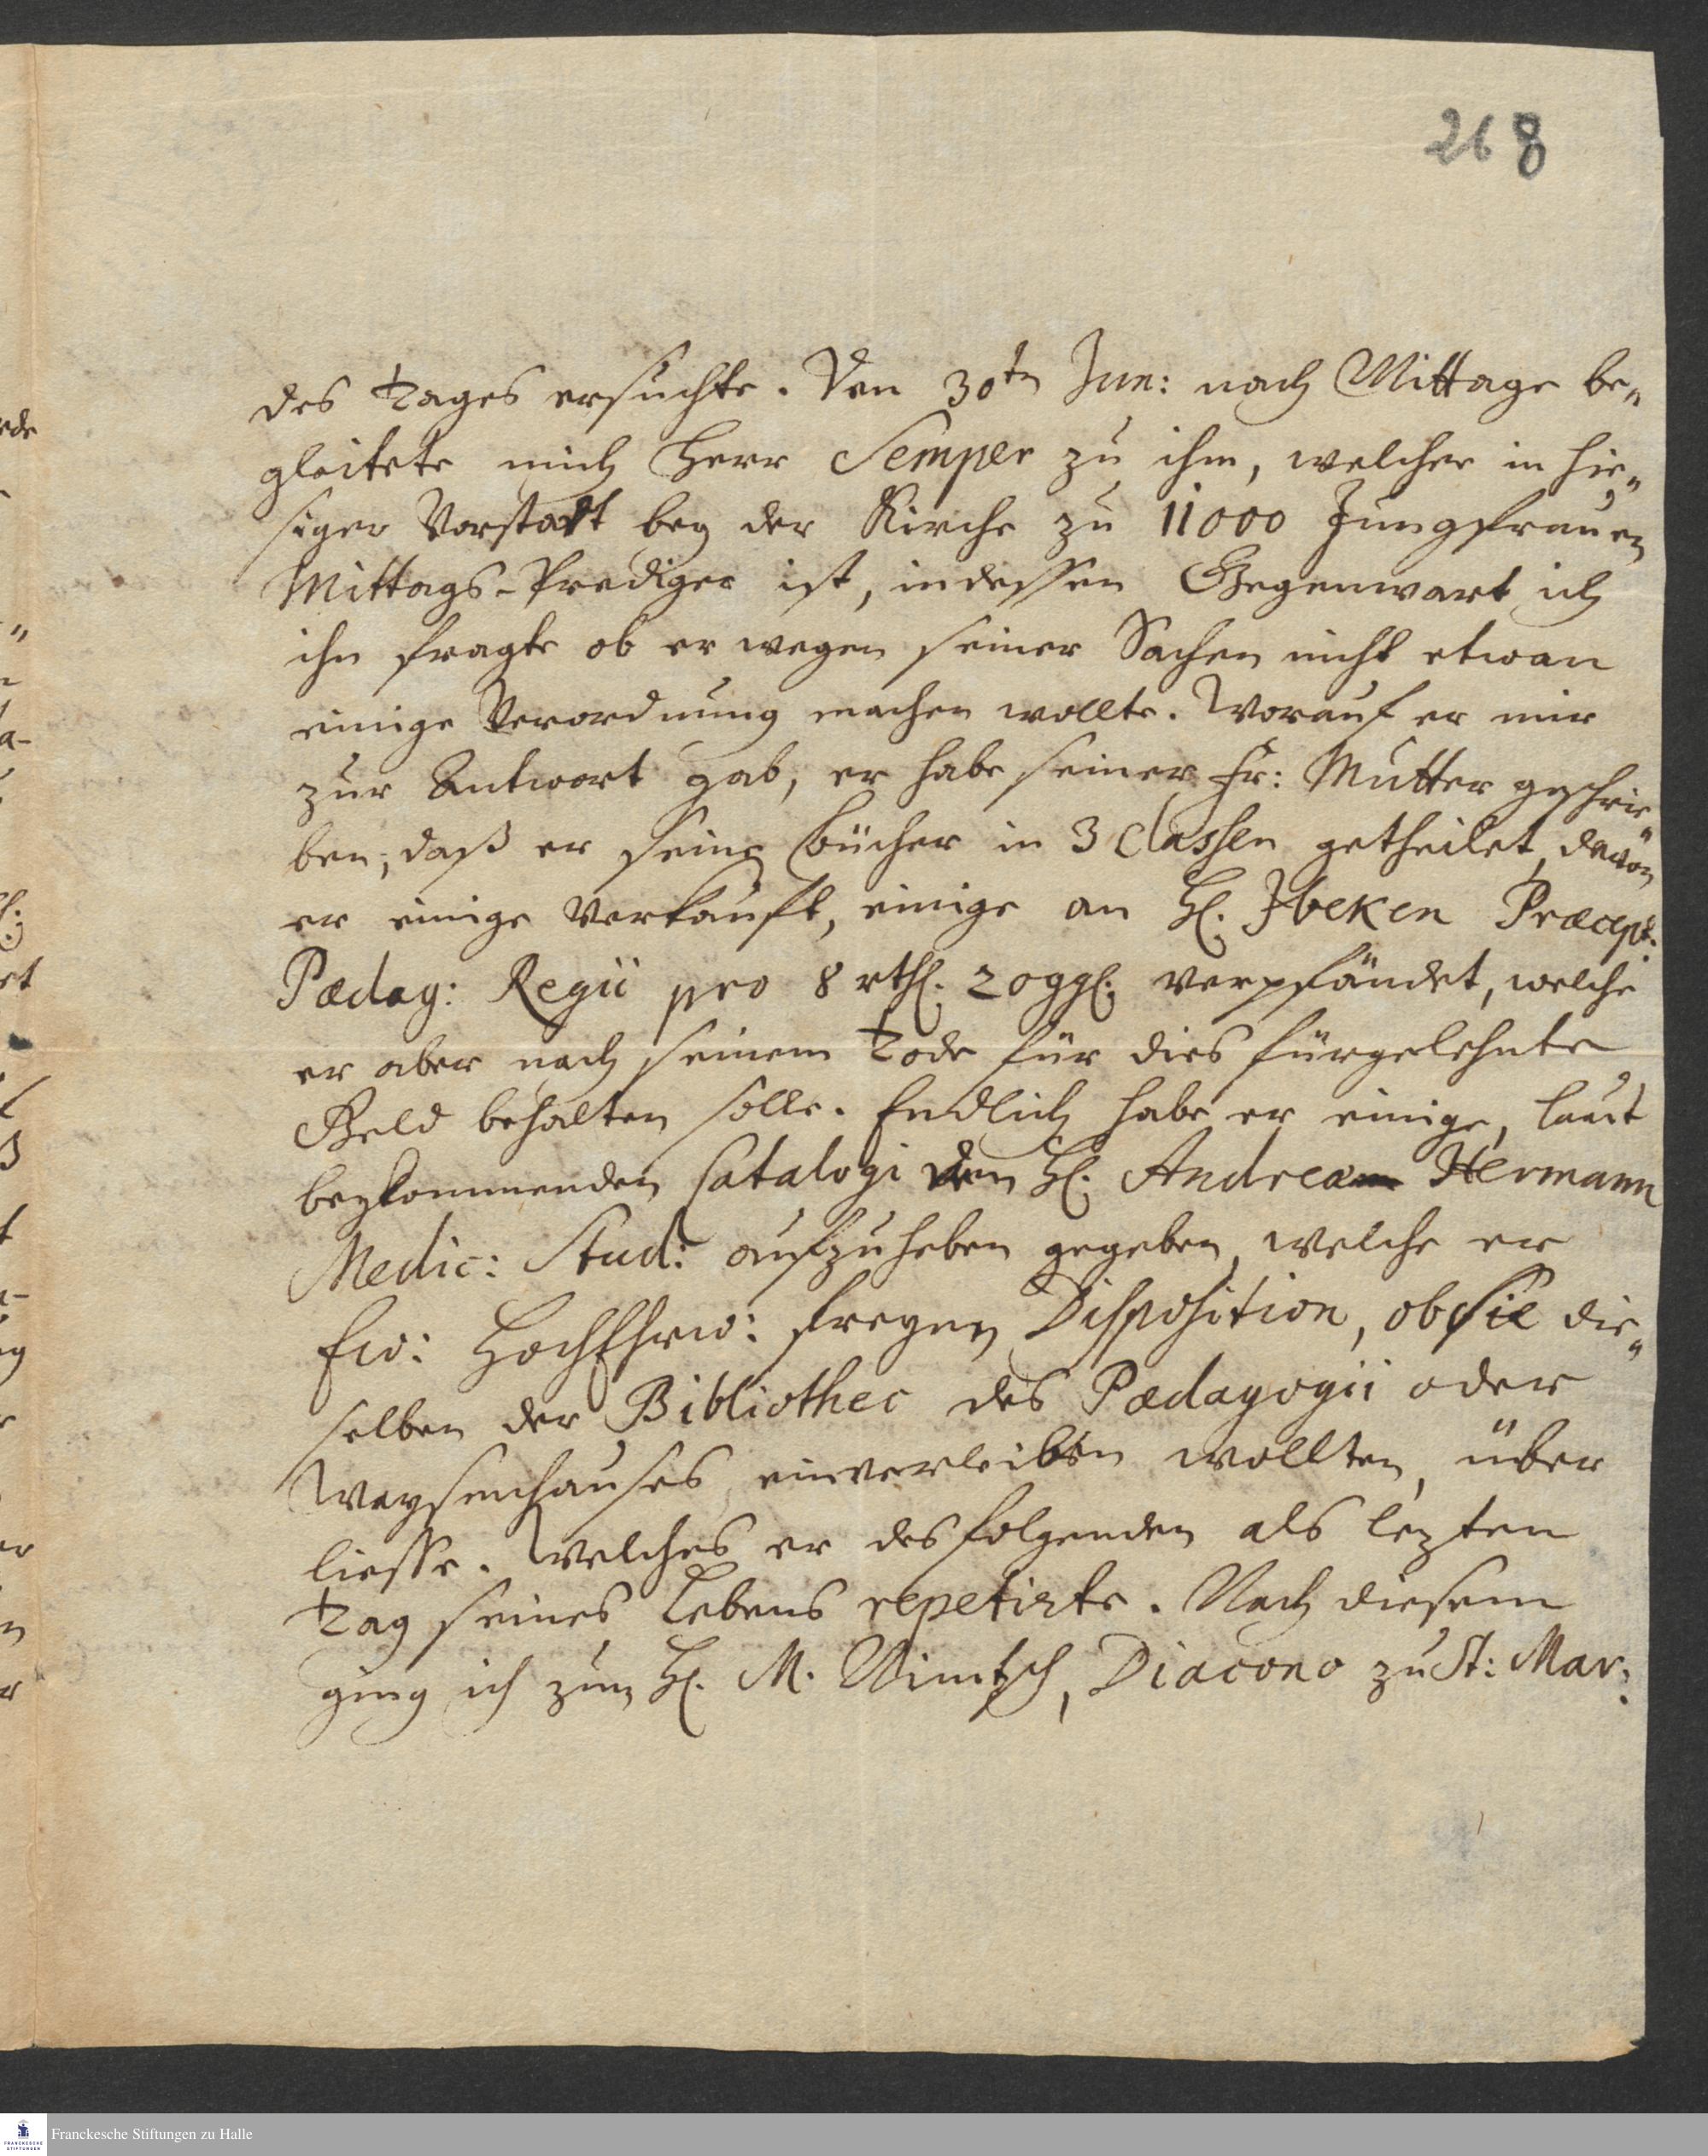 268
des Tages ersuchte. Den 30tn Jun: nach Mittage be„
gleitete mich Herr Semper zu ihm, welcher in hie„
siger Vorstatt bey der Kirche zu 11000 Jungfrauen
Mittags-Prediger ist, in dessen Gegenwart ich
ihn fragte ob er wegen seiner Sachen nicht etwan
einige Verordnung machen wollte. Worauf er mir
zur Antwort gab, er habe seiner Fr: Mutter geschrie„
ben, daß er seine Bücher in 3 Classen getheilet, davon
er einige verkauft, einige an H. Ibeken Præcept.
Pædag: Regii pro 8 rthl. 20 ggl. verpfändet, welche
er aber nach seinem Tode für dies fürgelehnte
Geld behalten solle. Endlich habe er einige, laut
beykommenden Catalogi den H. Andrea Hermann
Medic: Stud: aufzuheben gegeben, welche er
Ew: HochEhrw: freyen Disposition, ob sie die„
selben der Bibliothec des Pædagogii oder
Waysenhauses einverleiben wollten, über
liesse. Welches er des folgenden als lezten
Tag seines Lebens repetirte. Nach diesem
ging ich zum H. M. Nimtsch, Diacono zu St: Mar:
Franckesche Stiftungen zu Halle